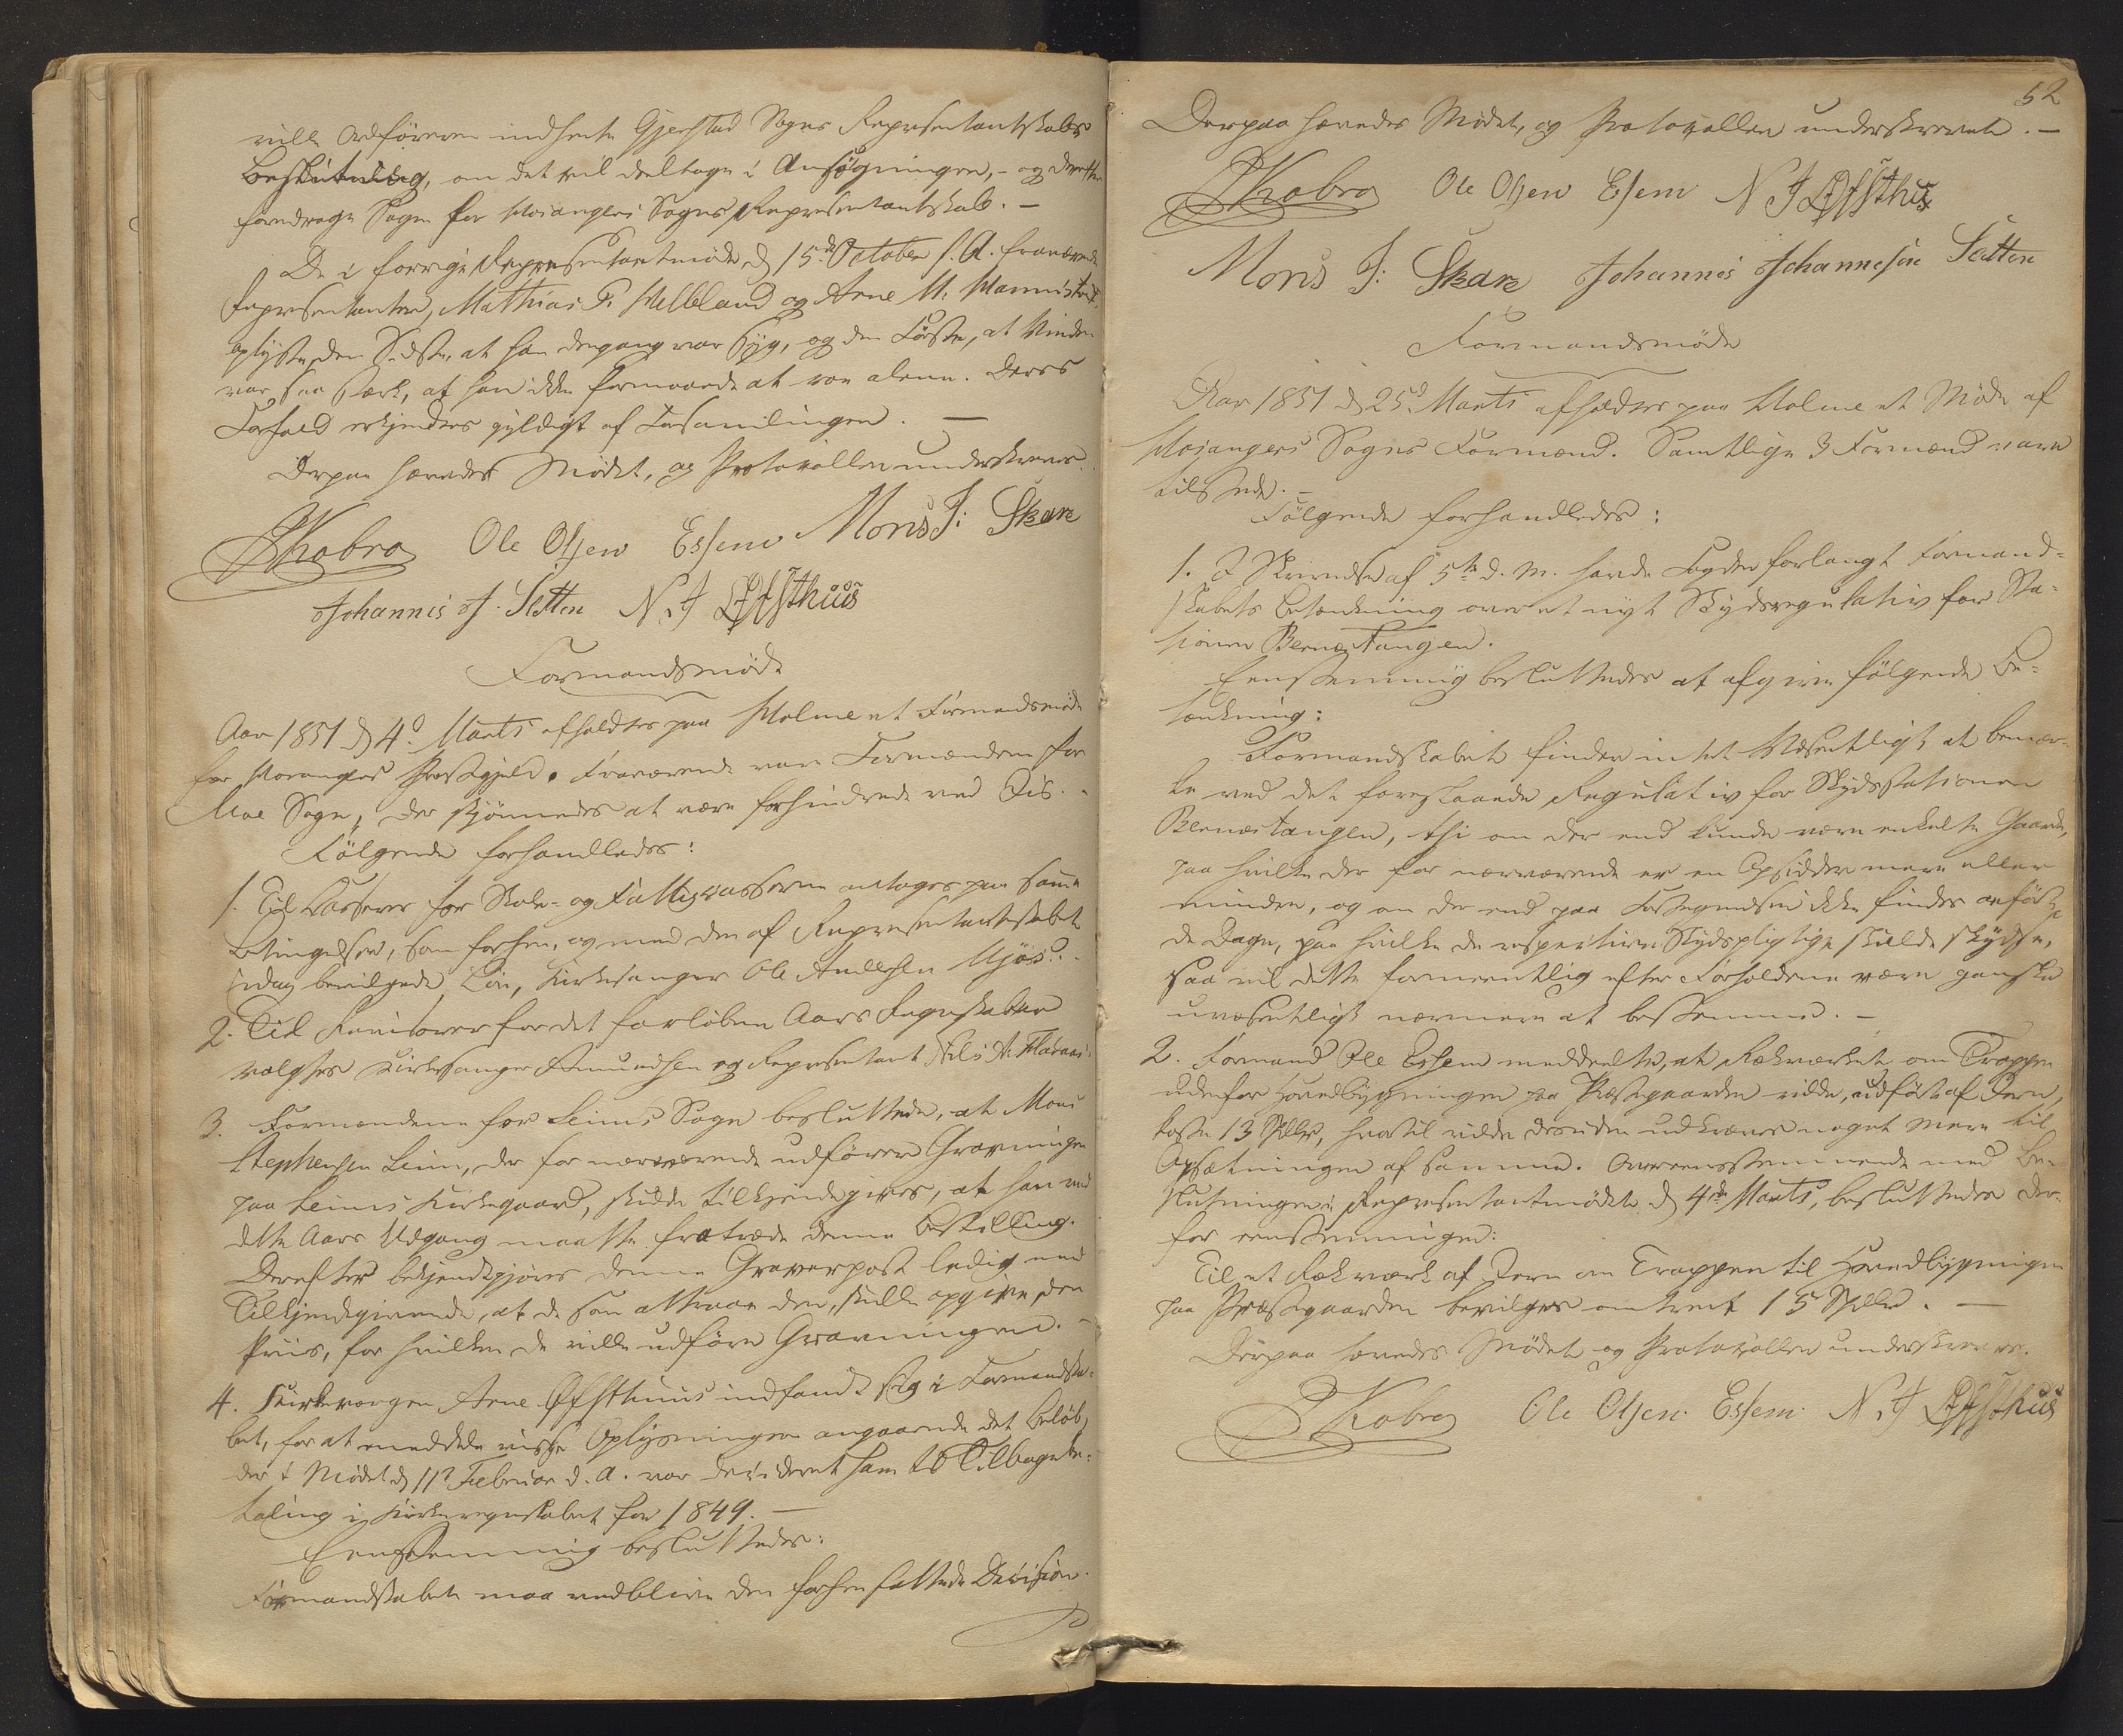 vilde Ordføreren indhente Gjerstad Sogns Repræsentantskabs
Beslutning, om det vil deeltage i Ansøgningen, - og derefter
foredrage Sagen for Hosangers Sogns Repræsentantskab. -
De i forrige Repræsentantmøde d 15de October f. A. fraværende
Repræsentanter, Mathias P. Helleland og Arne M. Mannis
oplyste, den Sidste, at han dengang var syg, og den Første, at Vinden
var saa stærk, at han ikke formaaede at roe alene. Deres
Forfald erkjendtes gyldigt af Forsamlingen. -
Derpaa hævedes Mødet, og Protokollen underskreves.
Kobro Ole Olsen Essem Mons J: Skare
Johannis J. Sletten N. J Øfsthuus
Formandsmøde
Aar 1851 d 4d Marts afholdtes paa Holme et Formandsmøde
for Hosangers Præstegjeld. Fraværende vare Formændene for
Moe Sogn, der skjønnedes at være forhindrede ved Iis. -
Følgende forhandledes:
1. Til Kasserer for Skole- og Fattigkasserne antoges paa samme
Betingelser, som forhen, og med den af Repræsentantskabet
idag bevilgede Løn, Kirkesanger Ole Amundsen Mjøs. -
2. Til Revisorer for det forløbne Aars Regnskaber
valgtes Kirkesanger Amundsen og Repræsentant Nils N. Fladaas.
3. Formændene for Leims Sogn besluttede, at Mons
Stephensen Leim, der for nærværende udfører Gravningen
paa Leims Kirkegaard, skulde tilkjendegives, at han ved
dette Aars Udgang maatte fratræde denne Bestilling.
Derefter bekjendtgjøres denne Graverpost ledig med
Tilkjendegivende, at de som attraaer den, skulle opgive den
Priis, for hvilken de ville udføre Gravningen. -
4. Kirkeværgen Arne Øfsthuus indfandt sig i Formandska-
bet, for at meddele visse Oplysninger angaaende det Beløb,
der i Mødet d 11d Februar d. A. var decideret ham til Tilbagebe-
taling i Kirkeregnskabet for 1849. -
Eenstemmig besluttedes:
Formandskabet maa vedblive den forhen fattede Decision.
52
Derpaa hævedes Mødet, og Protokollen underskrevet. -
Kobro Ole Olsen Essem N J Øfsthus
Mons J: Skare Johannis Johannesen Sletten
Formandsmøde
Aar 1851 d 25d Marts afholdtes paa Holme et Møde af
Hosangers Sogns Formænd. Samtlige 3 Formænd vare
tilstede. -
Følgende forhandledes:
1. I Skrivelse af 5te d. M. havde Fogden forlangt Formand-
skabets Betænkning over et nyt Skydsregulativ for Sta-
tionen Bernestangen.
Eenstemmig besluttedes at afgive følgende Be-
tænkning:
Formandskabet finder intet Væsentligt at bemær-
ke ved det foreslaaede Regulativ for Skydsstationen
Bernestangen, thi om der end kunde være enkelte Gaarde,
paa hvilke der for nærværende er en Opsidder mere eller
mindre, og om der end paa Fortegnelsen ikke findes anført
de Dage, paa hvilke de respective Skydspligtige skulde skydse,
saa vil dette formeentlig efter Forholdene være ganske
uvæsentligt nærmere at bestemme. -
2. Formand Ole Essem meddeelte, at Rækværket om Trappen
udenfor Hovedbygningen paa Præstegaarden vilde, udført af Jern,
koste 13 Spdlr, hvortil vilde desuden udkræves noget mere til
Opsætningen af samme. Overeensstemmende med Be-
slutningen i Repræsentantmødet d 4de Marts, besluttedes der-
for eenstemmigen:
Til et Rækværk af Jern om Trappen til Hovedbygningen
paa Præstegaarden bevilges omtrent 15 Spdlr. -
Derpaa hævedes Mødet og Protokollen underskreves.
Kobro Ole Olsen Essem N. J Øfsthus